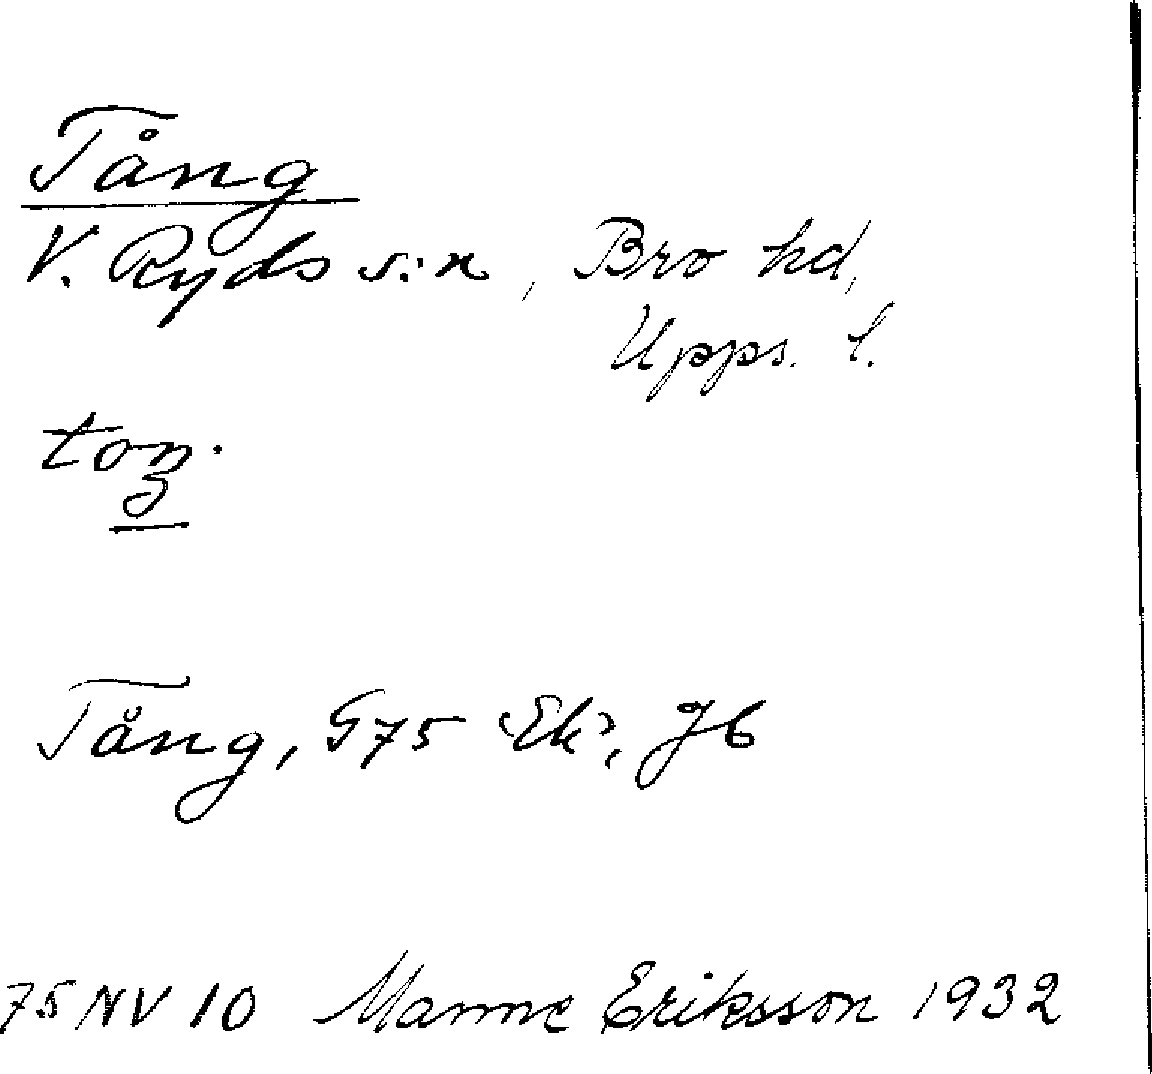 Tång
V. Ryds s:n, Bro hd,
Upps. l.
toŋ.
Tång, G75 Ek?, Jb
75 NV 10 Manne Eriksson 1932